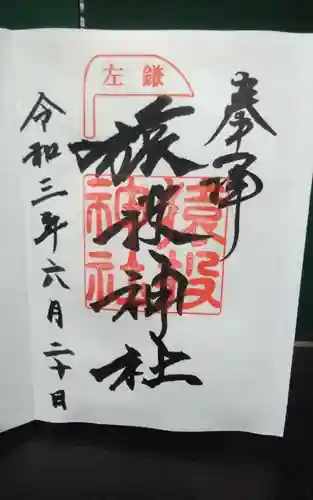 奉拝
左鎌
猿投神社
猿投神社
令和三年六月二十日